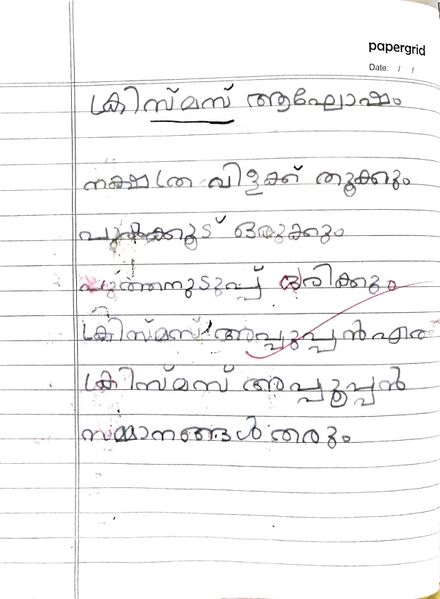 papergrid
Date: / /
ക്രിസ്മസ് ആഘോഷം
നക്ഷത്ര വിളക്ക് തൂക്കും
പുൽക്കൂട് ഒരുക്കും
പുത്തനുടുപ്പ് ധരിക്കും
ക്രിസ്മസ് അപ്പുപ്പൻ
ക്രിസ്മസ് അപ്പൂപ്പൻ
സമ്മാനങ്ങൾ തരും